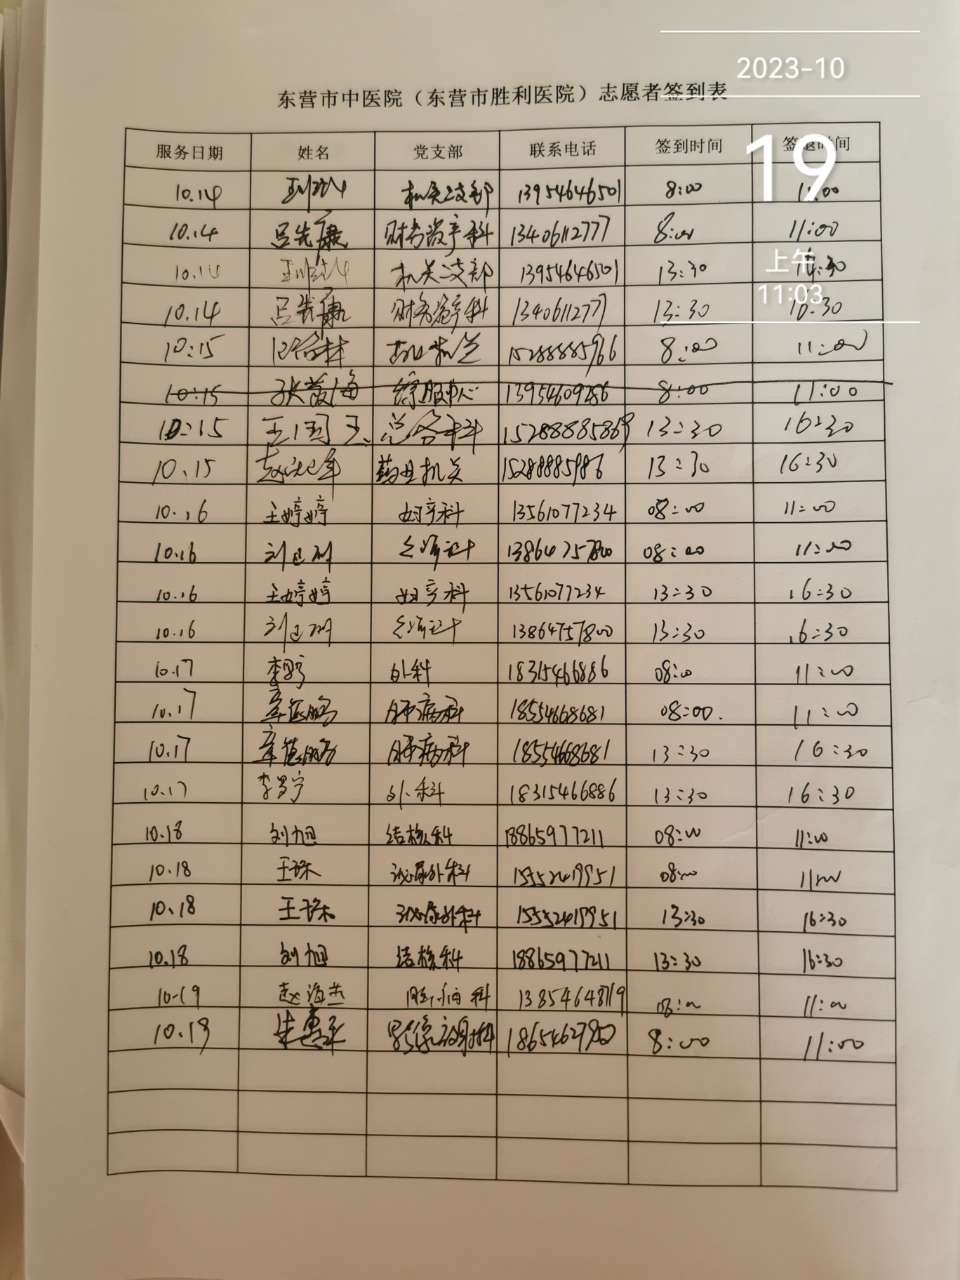 2023-10
东营市中医院（东营市胜利医院）志愿者签到表
19
服务日期 姓名 党支部 联系电话 签到时间 签退时间
10.14 机关二支部 13954646501 8:00 11:00
10.14 吕先康 财务资产科 13406112777 8:00 11:00
上午
机关二支部 13954646501 13:30
11:03
10.14 吕先康 财务资产科 13406112777 13:30
10:15 15288885986 8:00 11:00
10:15 13954609286 8:00 11:00
10:15 王国玉 总务科 13:30 16:30
10.15 药业机关 15288885986 13:30 16:30
10.16 王婷婷 妇产科 13561077234 08:00 11:00
10.16 08:00 11:00
10.16 王婷婷 妇产科 13561077234 13:30 16:30
10.16 13864757800 13:30 16:30
10.17 外科 18315466886 08:00 11:00
10.17 肿病科 18554668681 08:00. 11:00
10.17 肿病科 18554668681 13:30 16:30
10.17 外科 18315466886 13:30 16:30
10.18 刘旭 结核科 18865977211 08:00 11:00
10.18 泌尿外科 15552419951 08:00 11:00
10.18 泌尿外科 15552419951 13:30 16:30
10.18 刘旭 结核科 18865977211 13:30 16:30
10.19 赵海杰 13854648719 08:00 11:00
10.19 影像放射科 8:00 11:00